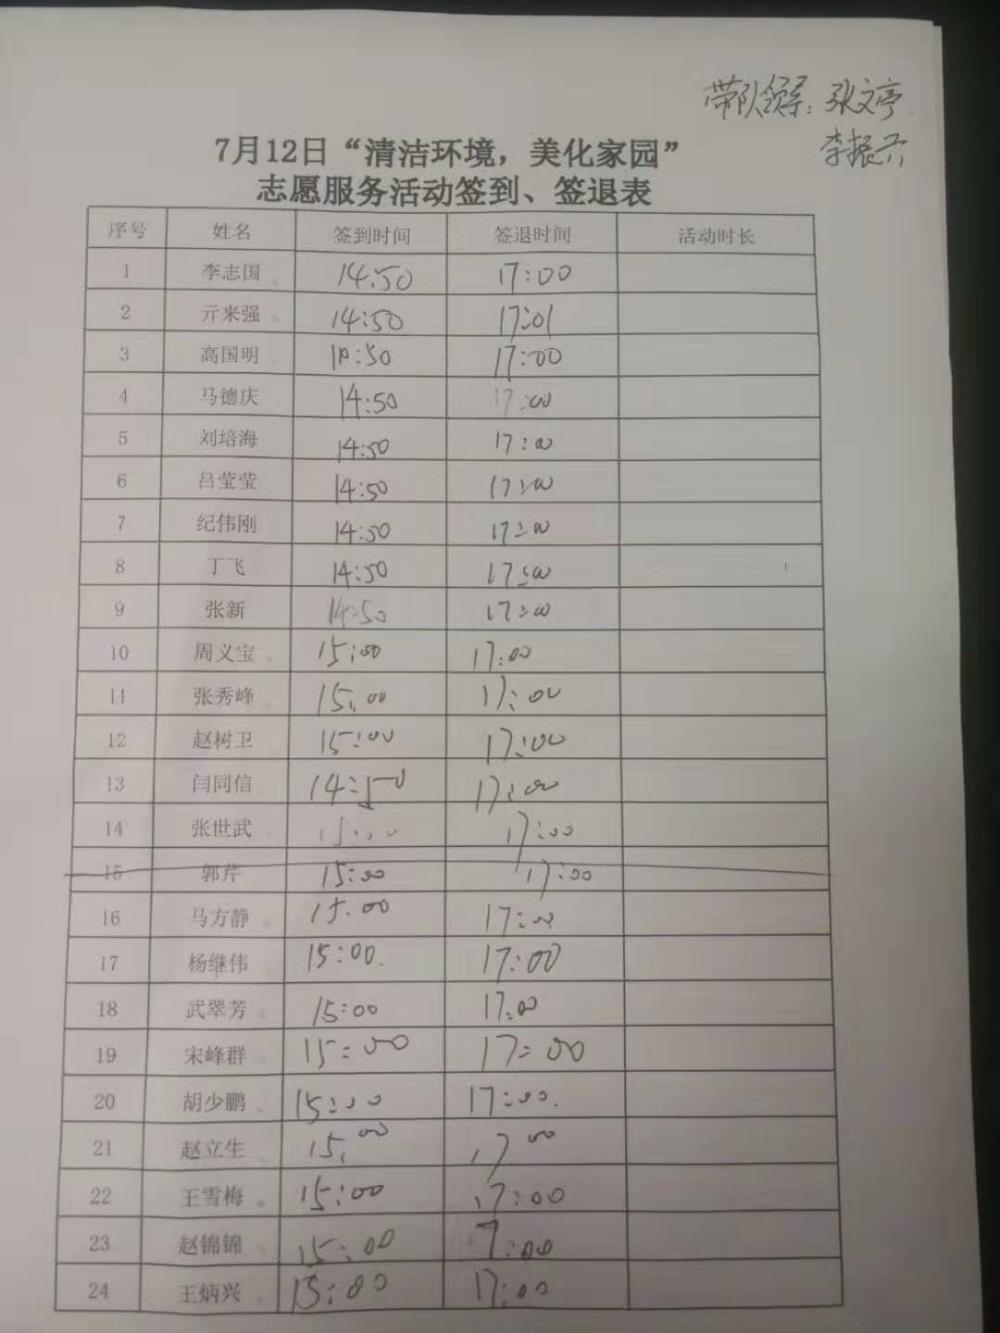 带队领导：张文亭
李振兴
7月12日“清洁环境，美化家园”
志愿服务活动签到、签退表
序号 姓名 签到时间 签退时间 活动时长
1 李志国 14:50 17:00
2 亓来强 14:50 17:01
3 高国明 14:50 17:00
4 马德庆 14:50 17:00
5 刘培海 14:50 17:00
6 吕莹莹 14:50 17:00
7 纪伟刚 14:50 17:00
8 丁飞 14:50 17:00
9 张新 14:50 17:00
10 周义宝 15:00 17:00
11 张秀峰 15:00 17:00
12 赵树卫 15:00 17:00
13 闫同信 14:50 17:00
14 张世武 15:00 17:00
15 郭芹 15:00 17:00
16 马方静 15:00 17:00
17 杨继伟 15:00. 17:00
18 武翠芳 15:00 17:00
19 宋峰群 15:00 17:00
20 胡少鹏 15:00 17:00.
21 赵立生 15:00 17:00
22 王雪梅 15:00 17:00
23 赵锦锦 15:00 7:00
24 王炳兴 15:00 17:00